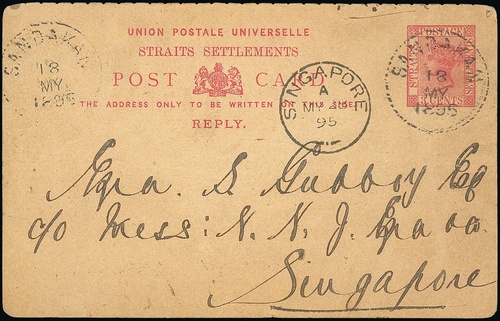 UNION POSTALE UNIVERSELLE
STRAITS SETTLEMENTS
POST CARD
THE ADDRESS ONLY TO BE WRITTEN ON THIS SIDE
REPLY.
SANDAKAN
18
MY
1895
SINGAPORE
A
MY
95
SANDAKAN
18
MY
1895
POSTAGE
3 CENTS
S. Gubboy Esq
c/o Mess: N. N. J. Ezra &
Singapore